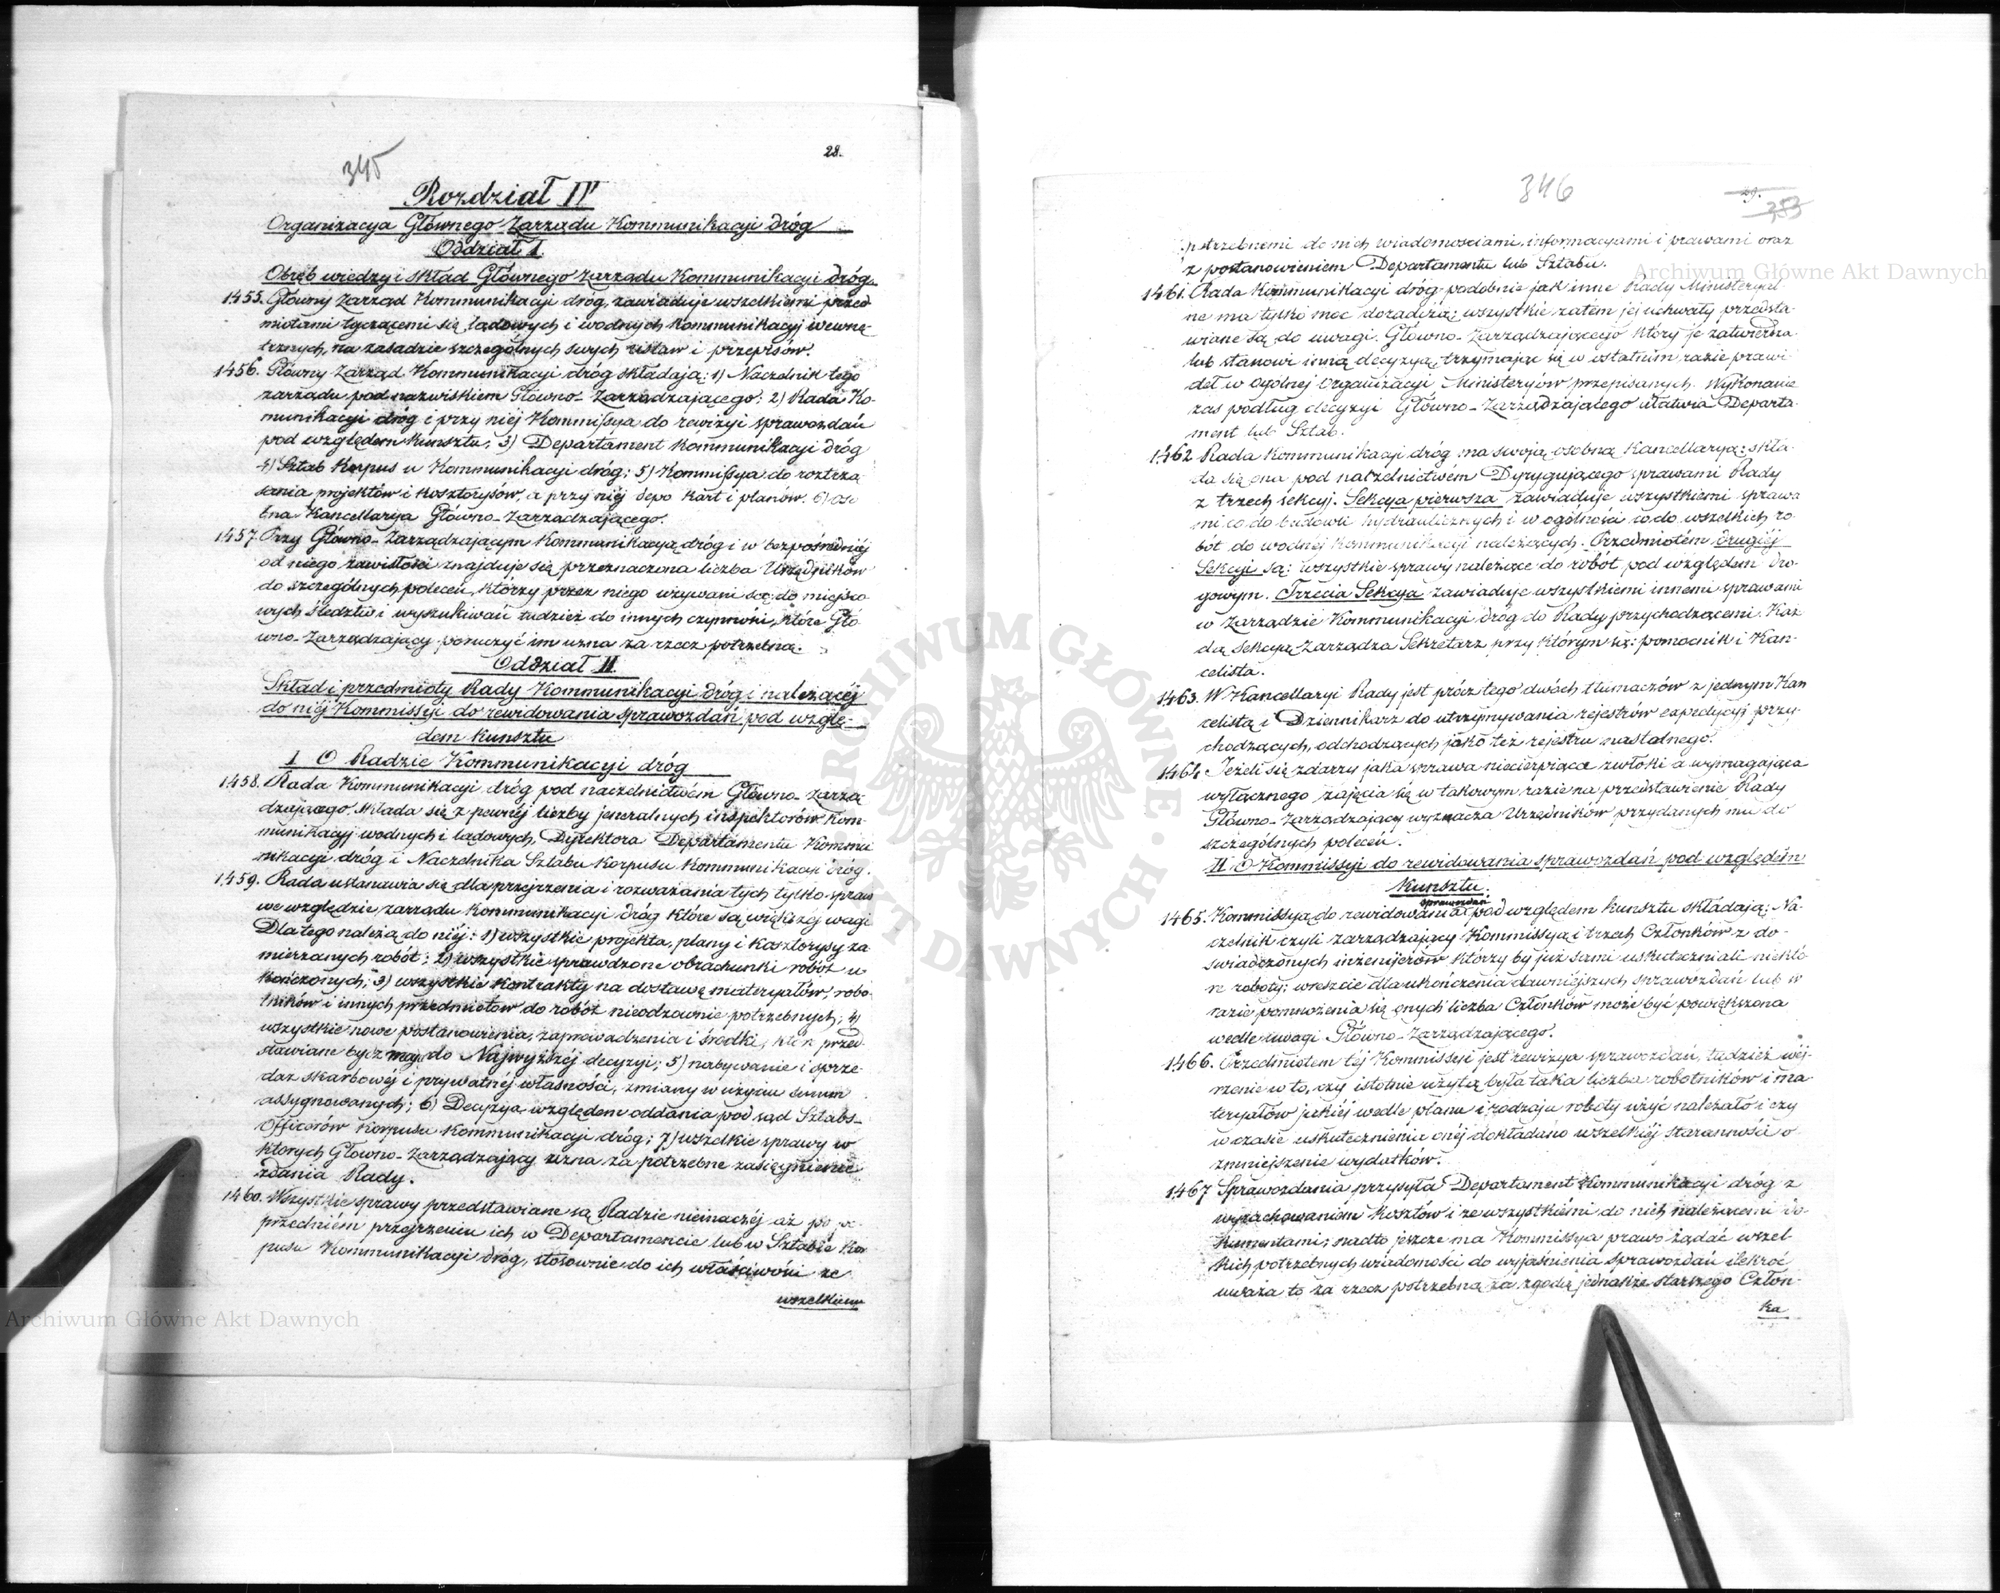 345
28.
Rozdział IV
Organizacya Głównego Zarządu Kommunikacyi dróg
Oddział I.
Obręb wiedzy i skład Głównego Zarządu Kommunikacyi dróg.
1455. Główny Zarząd Kommunikacyi dróg, zawiaduje wszelkiemi przed-
miotami tyczącemi się lądowych i wodnych Kommunikacyj wewnę-
trznych, na zasadzie szczególnych swych ustaw i przepisów.
1456. Główny Zarząd Kommunikacyi dróg składają: 1) Naczelnik tego
zarządu pod nazwiskiem Główno-Zarządzającego; 2) Rada Ko-
munikacyi dróg i przy niéj Kommissya do rewizyi sprawozdań
pod względem kunsztu; 3) Departament Kommunikacyi dróg
4) Sztab Korpusu Kommunikacyi dróg; 5) Kommissya do roztrzą-
sania projektów i kosztorysów, a przy niéj depo kart i planów. 6) oso
bna Kancellarya Główno-Zarządzającego.
1457. Przy Główno-Zarządzającym Kommunikacyą dróg i w bezpośredniéj
od niego zawisłości znajduje się przeznaczona liczba Urzędników
do szczególnych poleceń, którzy przez niego używani są do miejsco-
wych śledztw i wyszukiwań tudzież do innych czynności, które Głó
wno-Zarządzający poruczyć im uzna za rzecz potrzebną.
Oddział II.
Skład i przedmioty Rady Kommunikacyi dróg i należącéj
do niéj Kommissyi do rewidowania sprawozdań pod wzglę-
dem kunsztu
I O Radzie Kommunikacyi dróg
1458. Rada Kommunikacyi dróg pod naczelnictwem Główno-Zarzą-
dzającego składa się z pewnéj liczby jeneralnych inspektorów Kom-
munikacyj wodnych i lądowych, Dyrektora Departamentu Kommu
nikacyi dróg i Naczelnika Sztabu Korpusu Kommunikacyi dróg.
1459. Rada ustanawia się dla przejrzenia i rozważania tych tylko spraw
we względzie zarządu Kommunikacyi dróg które są większéj wagi
Dla tego należą do niéj: 1) wszystkie projekta, plany i kosztorysy za
mierzanych robót; 2) wszystkie sprawdzone obrachunki robót u
kończonych; 3) wszystkie kontrakty na dostawę materyałów, robo-
tników i innych przedmiotów do robót nieodzownie potrzebnych; 4)
wszystkie nowe postanowienia, zaprowadzenia i środki, które przed-
stawiane być mają do Najwyższéj decyzyi; 5) nabywanie i sprze-
daż skarbowéj i prywatnéj własności, zmiany w użyciu summ
assygnowanych; 6) Decyzya względem oddania pod sąd Sztabs-
Officerów Korpusu Kommunikacyi dróg; 7) wszelkie sprawy w
których Główno-Zarządzający uzna za potrzebne zasięgnienie
zdania Rady.
1460. Wszystkie sprawy przedstawiane są Radzie nieinaczéj aż po po-
przedniém przejrzeniu ich w Departamencie lub w Sztabie Kor
pusu Kommunikacyi dróg, stosownie do ich właściwości ze
wszelkiemi
346
29.
353
potrzebnemi do nich wiadomościami, informacyami i prawami oraz
z postanowieniem Departamentu lub Sztabu.
1461. Rada Kommunikacyi dróg podobnie jak inne Rady Ministeryal-
ne ma tylko moc doradczą; wszystkie zatém jej uchwały przedsta-
wiane są do uwagi Główno-Zarządzającego który je zatwierdza
lub stanowi inną decyzyą, trzymając się w ostatnim razie prawi
deł w ogólnej Organizacyi Ministeryów przepisanych. Wykonanie
zaś podług decyzyi Główno-Zarządzającego ułatwia Departa-
ment lub Sztab.
1462 Rada Kommunikacyi dróg ma swoją osobną Kancellaryą; skła-
da się ona pod naczelnictwem Dyrygującego sprawami Rady
z trzech sekcyj. Sekcya pierwsza zawiaduje wszystkiemi sprawa
mi co do budowli hydraulicznych i w ogólności co do wszelkich ro-
bót do wodnéj Kommunikacyi należących. Przedmiotem drugiéj
Sekcyi są: wszystkie sprawy należące do robót pod względem dro-
gowym. Trzecia Sekcya zawiaduje wszystkiemi innemi sprawami
w Zarządzie Kommunikacyi dróg do Rady przychodzącemi. Każ
dą sekcyą zarządza Sekretarz przy którym są: pomocnik i Kan-
celista.
1463. W Kancellaryi Rady jest prócz tego dwóch tłumaczów z jednym Kan
celistą i Dziennikarz do utrzymywania rejestrów expedycyj przy-
chodzących, odchodzących jako też rejestru nastolnego.
1464. Jeżeli się zdarzy jaka sprawa niecierpiąca zwłoki a wymagająca
wyłącznego zajęcia się w takowym razie na przedstawienie Rady
Główno-Zarządzający wyznacza Urzędników przydanych mu do
szczególnych poleceń.
II. O Kommissyi do rewidowania sprawozdań pod względem
Kunsztu.
sprawozdań
1465. Kommissyą do rewidowania pod względem kunsztu składają; Na-
czelnik czyli zarządzający Kommissyą i trzech Członków z do-
świadczonych inżenijerów którzy by już sami uskuteczniali niektó-
re roboty; wreszcie dla ukończenia dawniejszych sprawozdań lub w
razie pomnożenia się onych liczba Członków może być powiększona
wedle uwagi Główno-Zarządzającego.
1466. Przedmiotem téj Kommissyi jest rewizya sprawozdań, tudzież wéj-
rzenie w to, czy istotnie użytą była taka liczba robotników i ma
teryałów jakiéj wedle planu i rodzaju roboty użyć należało i czy
w czasie uskutecznienia onéj dokładano wszelkiéj staranności o
zmniejszenie wydatków.
1467 Sprawozdania przysyła Departament Kommunikacyi dróg z
wyrachowaniem kosztów i ze wszystkiemi do nich należącemi do-
kumentami; nadto jeszcze ma Kommissya prawo żądać wszel-
kich potrzebnych wiadomości do wyjaśnienia sprawozdań ilekroć
uważa to za rzecz potrzebną za zgodą jednakże starszego Człon-
ka
Archiwum Główne Akt Dawnych
Archiwum Główne Akt Dawnych
ARCHIWUM GŁÓWNE · AKT DAWNYCH ·